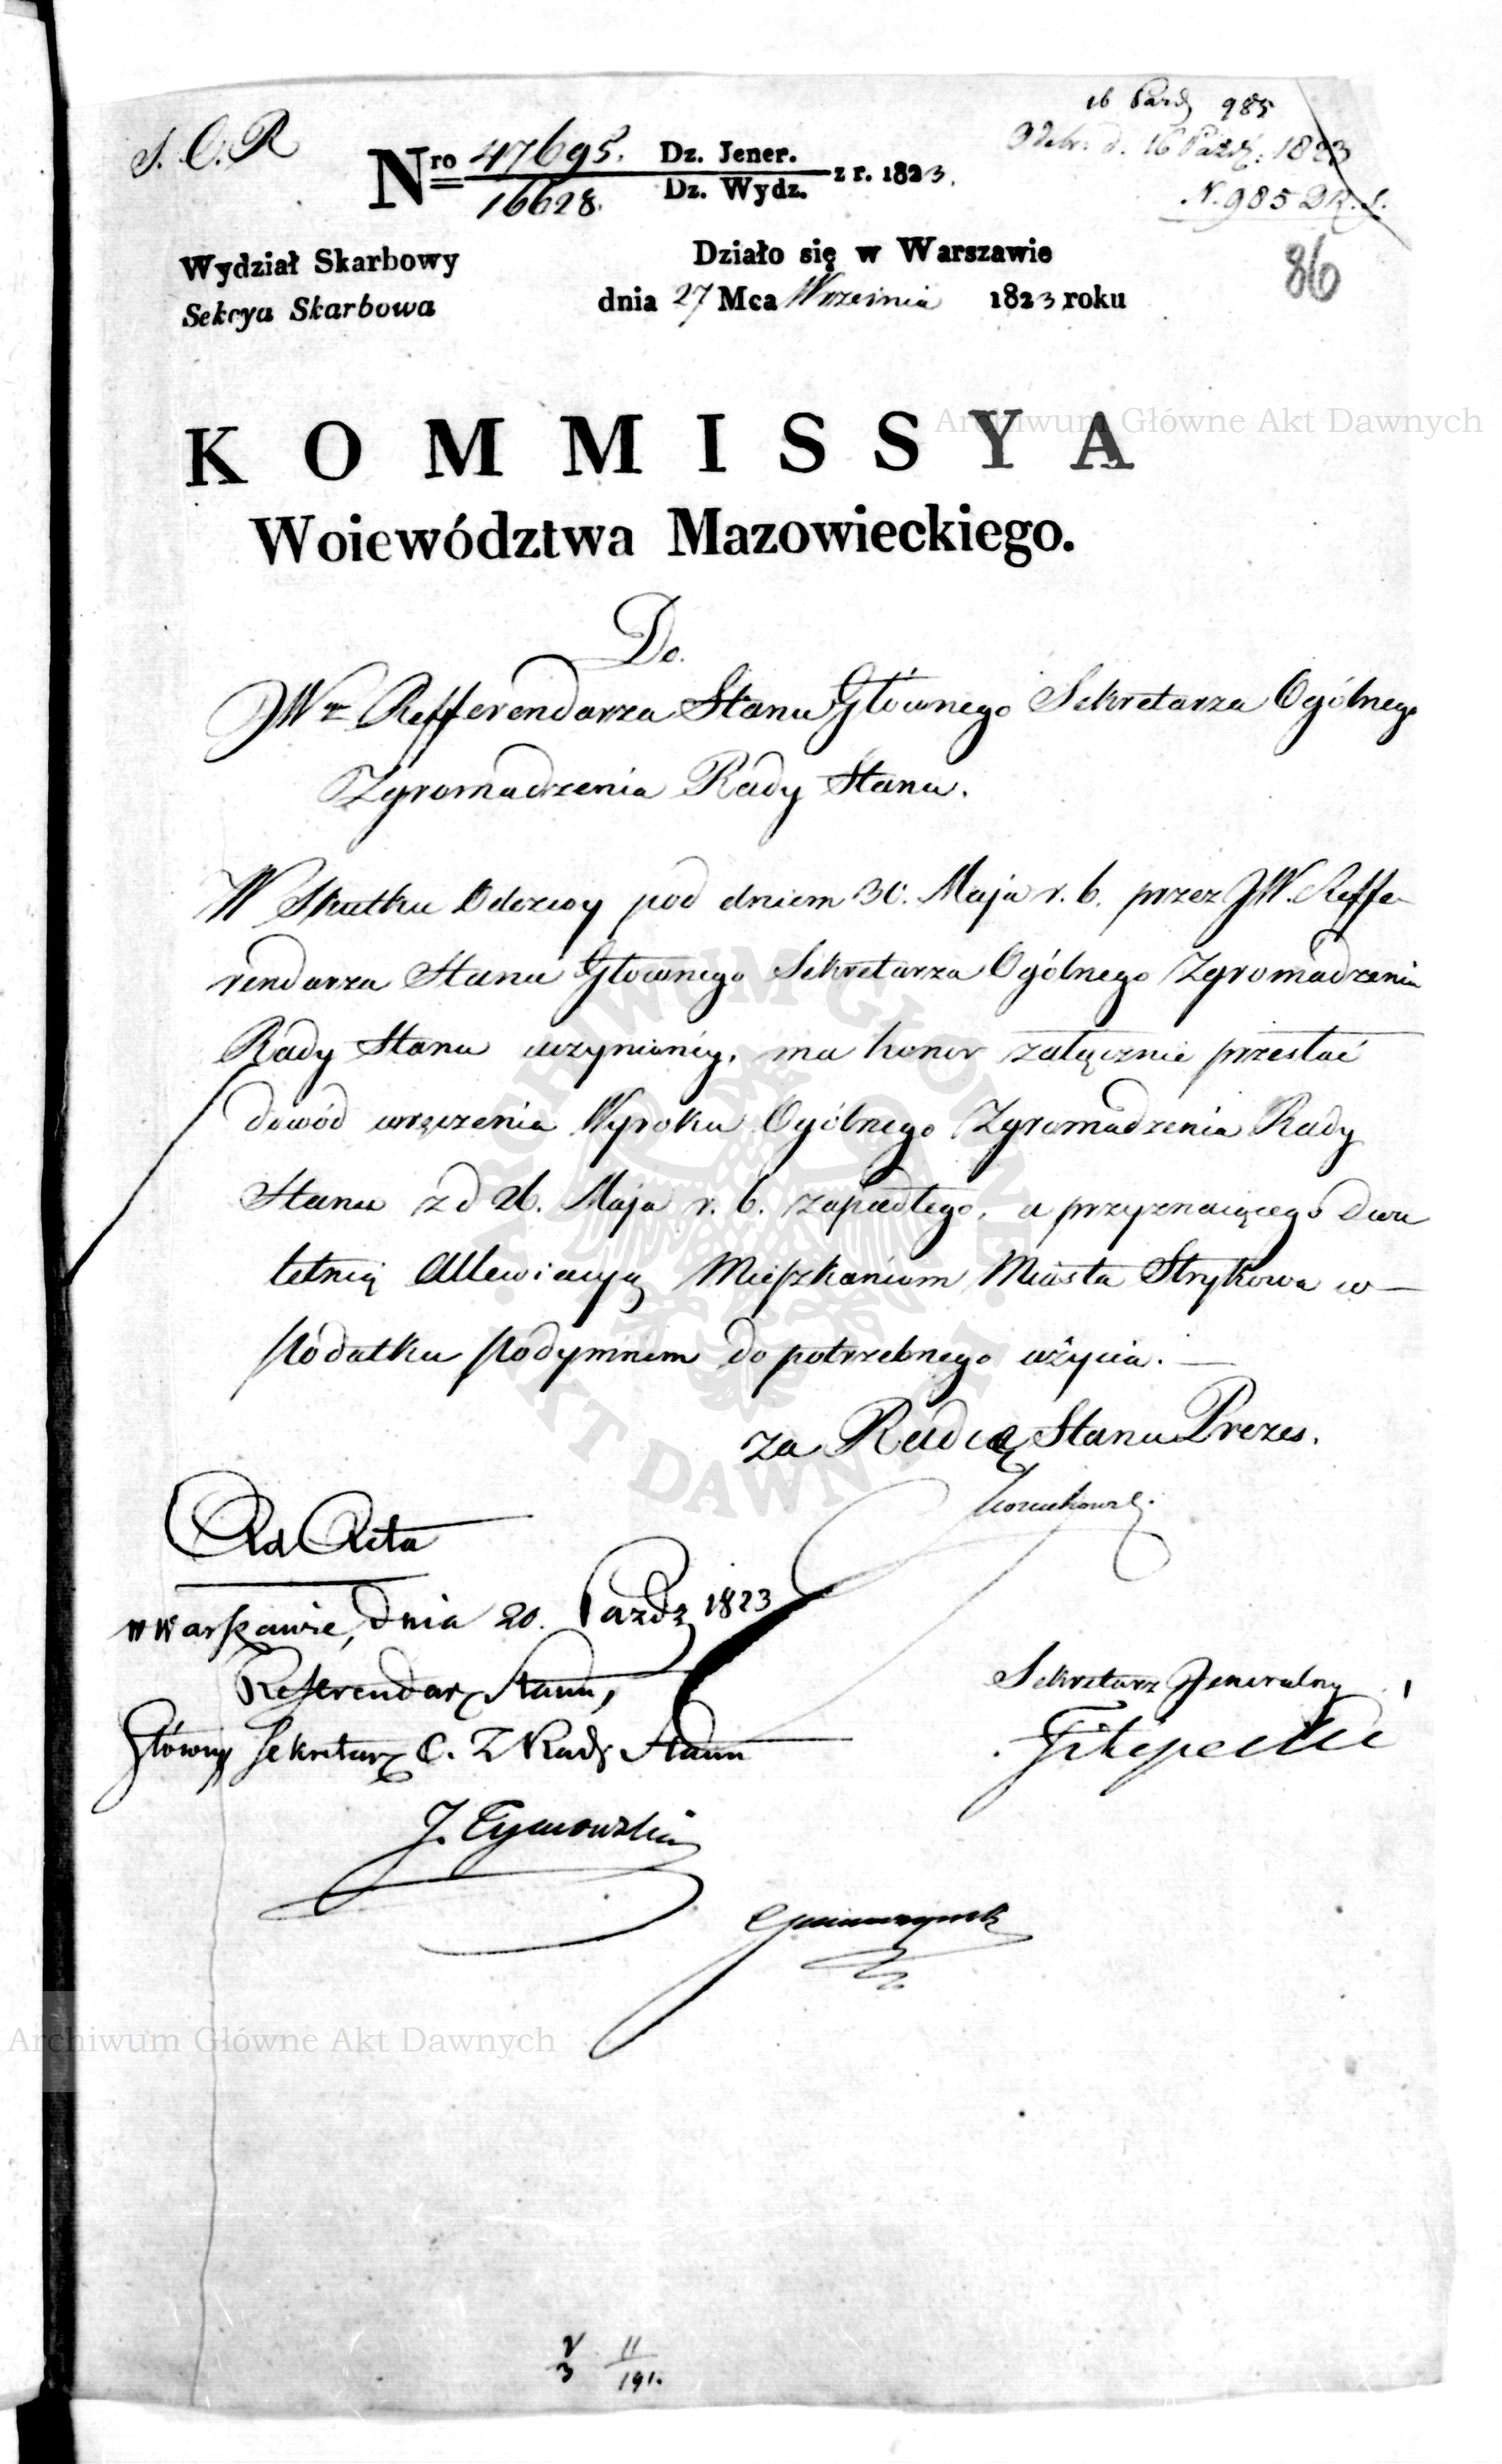 S. O. R
16 Paźdz 985
Odebr. d. 16 Paźdz: 1823
N. 985 D.R.S.
86
Nro 47695. Dz. Jener.
16628. Dz. Wydz. z r. 1823.
Wydział Skarbowy
Sekcya Skarbowa
Działo się w Warszawie
dnia 27 Mca Września 1823 roku
KOMMISSYA
Woiewództwa Mazowieckiego.
Do.
JWgo Refferendarza Stanu Głównego Sekretarza Ogólnego
Zgromadzenia Rady Stanu.
W Skutku Odezwy pod dniem 30. Maja r. b. przez JW. Reffe-
rendarza Stanu Głownego Sekretarza Ogólnego Zgromadzenia
Rady Stanu uczynioney, ma honor załącznie przesłać
dowód wręczenia Wyroku Ogólnego Zgromadzenia Rady
Stanu z d 26. Maja r. b. zapadłego, a przyznaiącego dwu
letnią Allewiacyą Mieszkańcom Miasta Strykowa w
Podatku Podymnem do potrzebnego użycia.
za Radcę Stanu Prezes.
Ad Acta
w Warszawie, dnia 20. Paźdz 1823
Referendarz Stanu,
Główny Sekretarz O. Z Rady Stanu
J. Tymowski
Sekretarz Jeneralny
Filipecki
V
3
11
191.
Archiwum Główne Akt Dawnych
ARCHIWUM GŁÓWNE
AKT DAWNYCH
Archiwum Główne Akt Dawnych